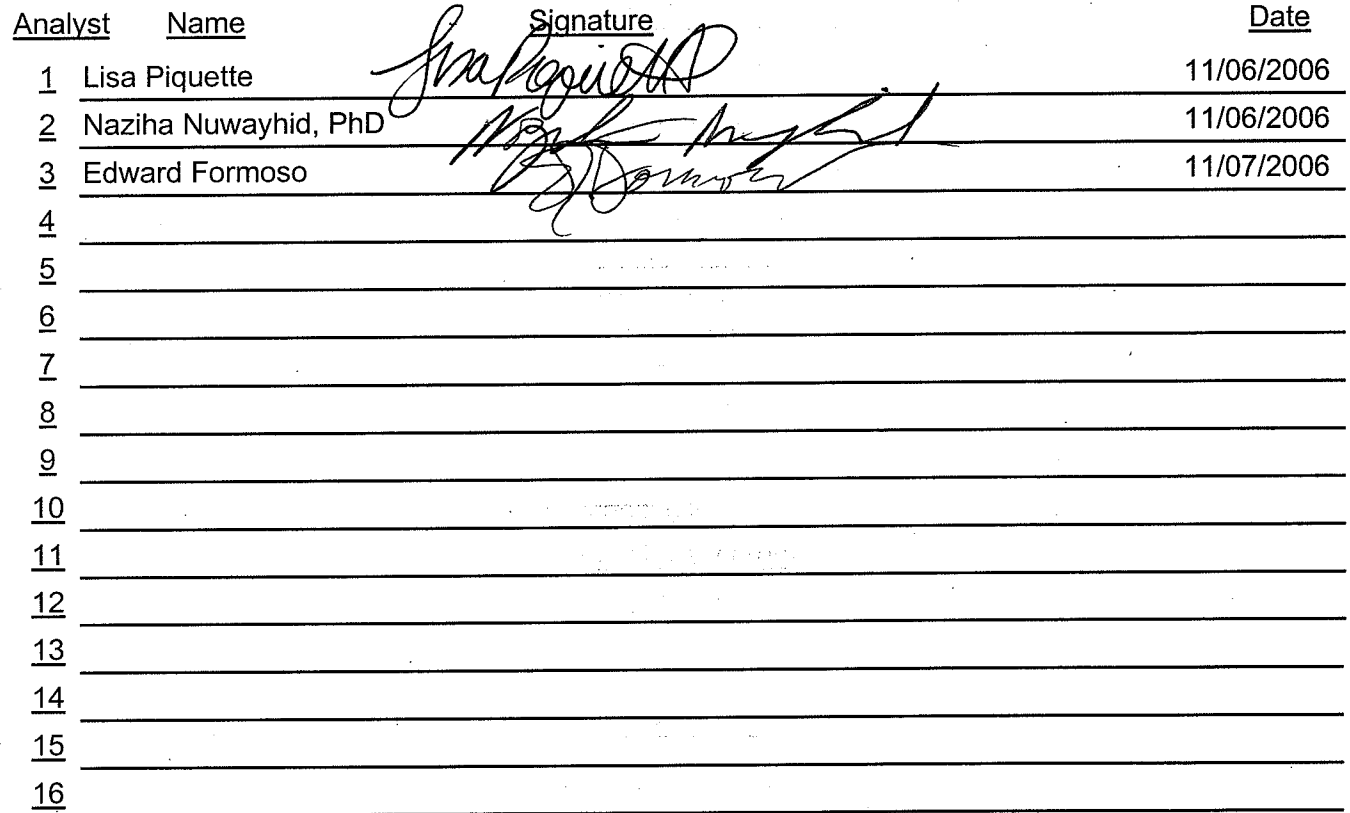 Analyst Name Signature Date
1 Lisa Piquette Lisa Piquette 11/06/2006
2 Naziha Nuwayhid, PhD 11/06/2006
3 Edward Formoso 11/07/2006
4
5
6
7
8
9
10
11
12
13
14
15
16